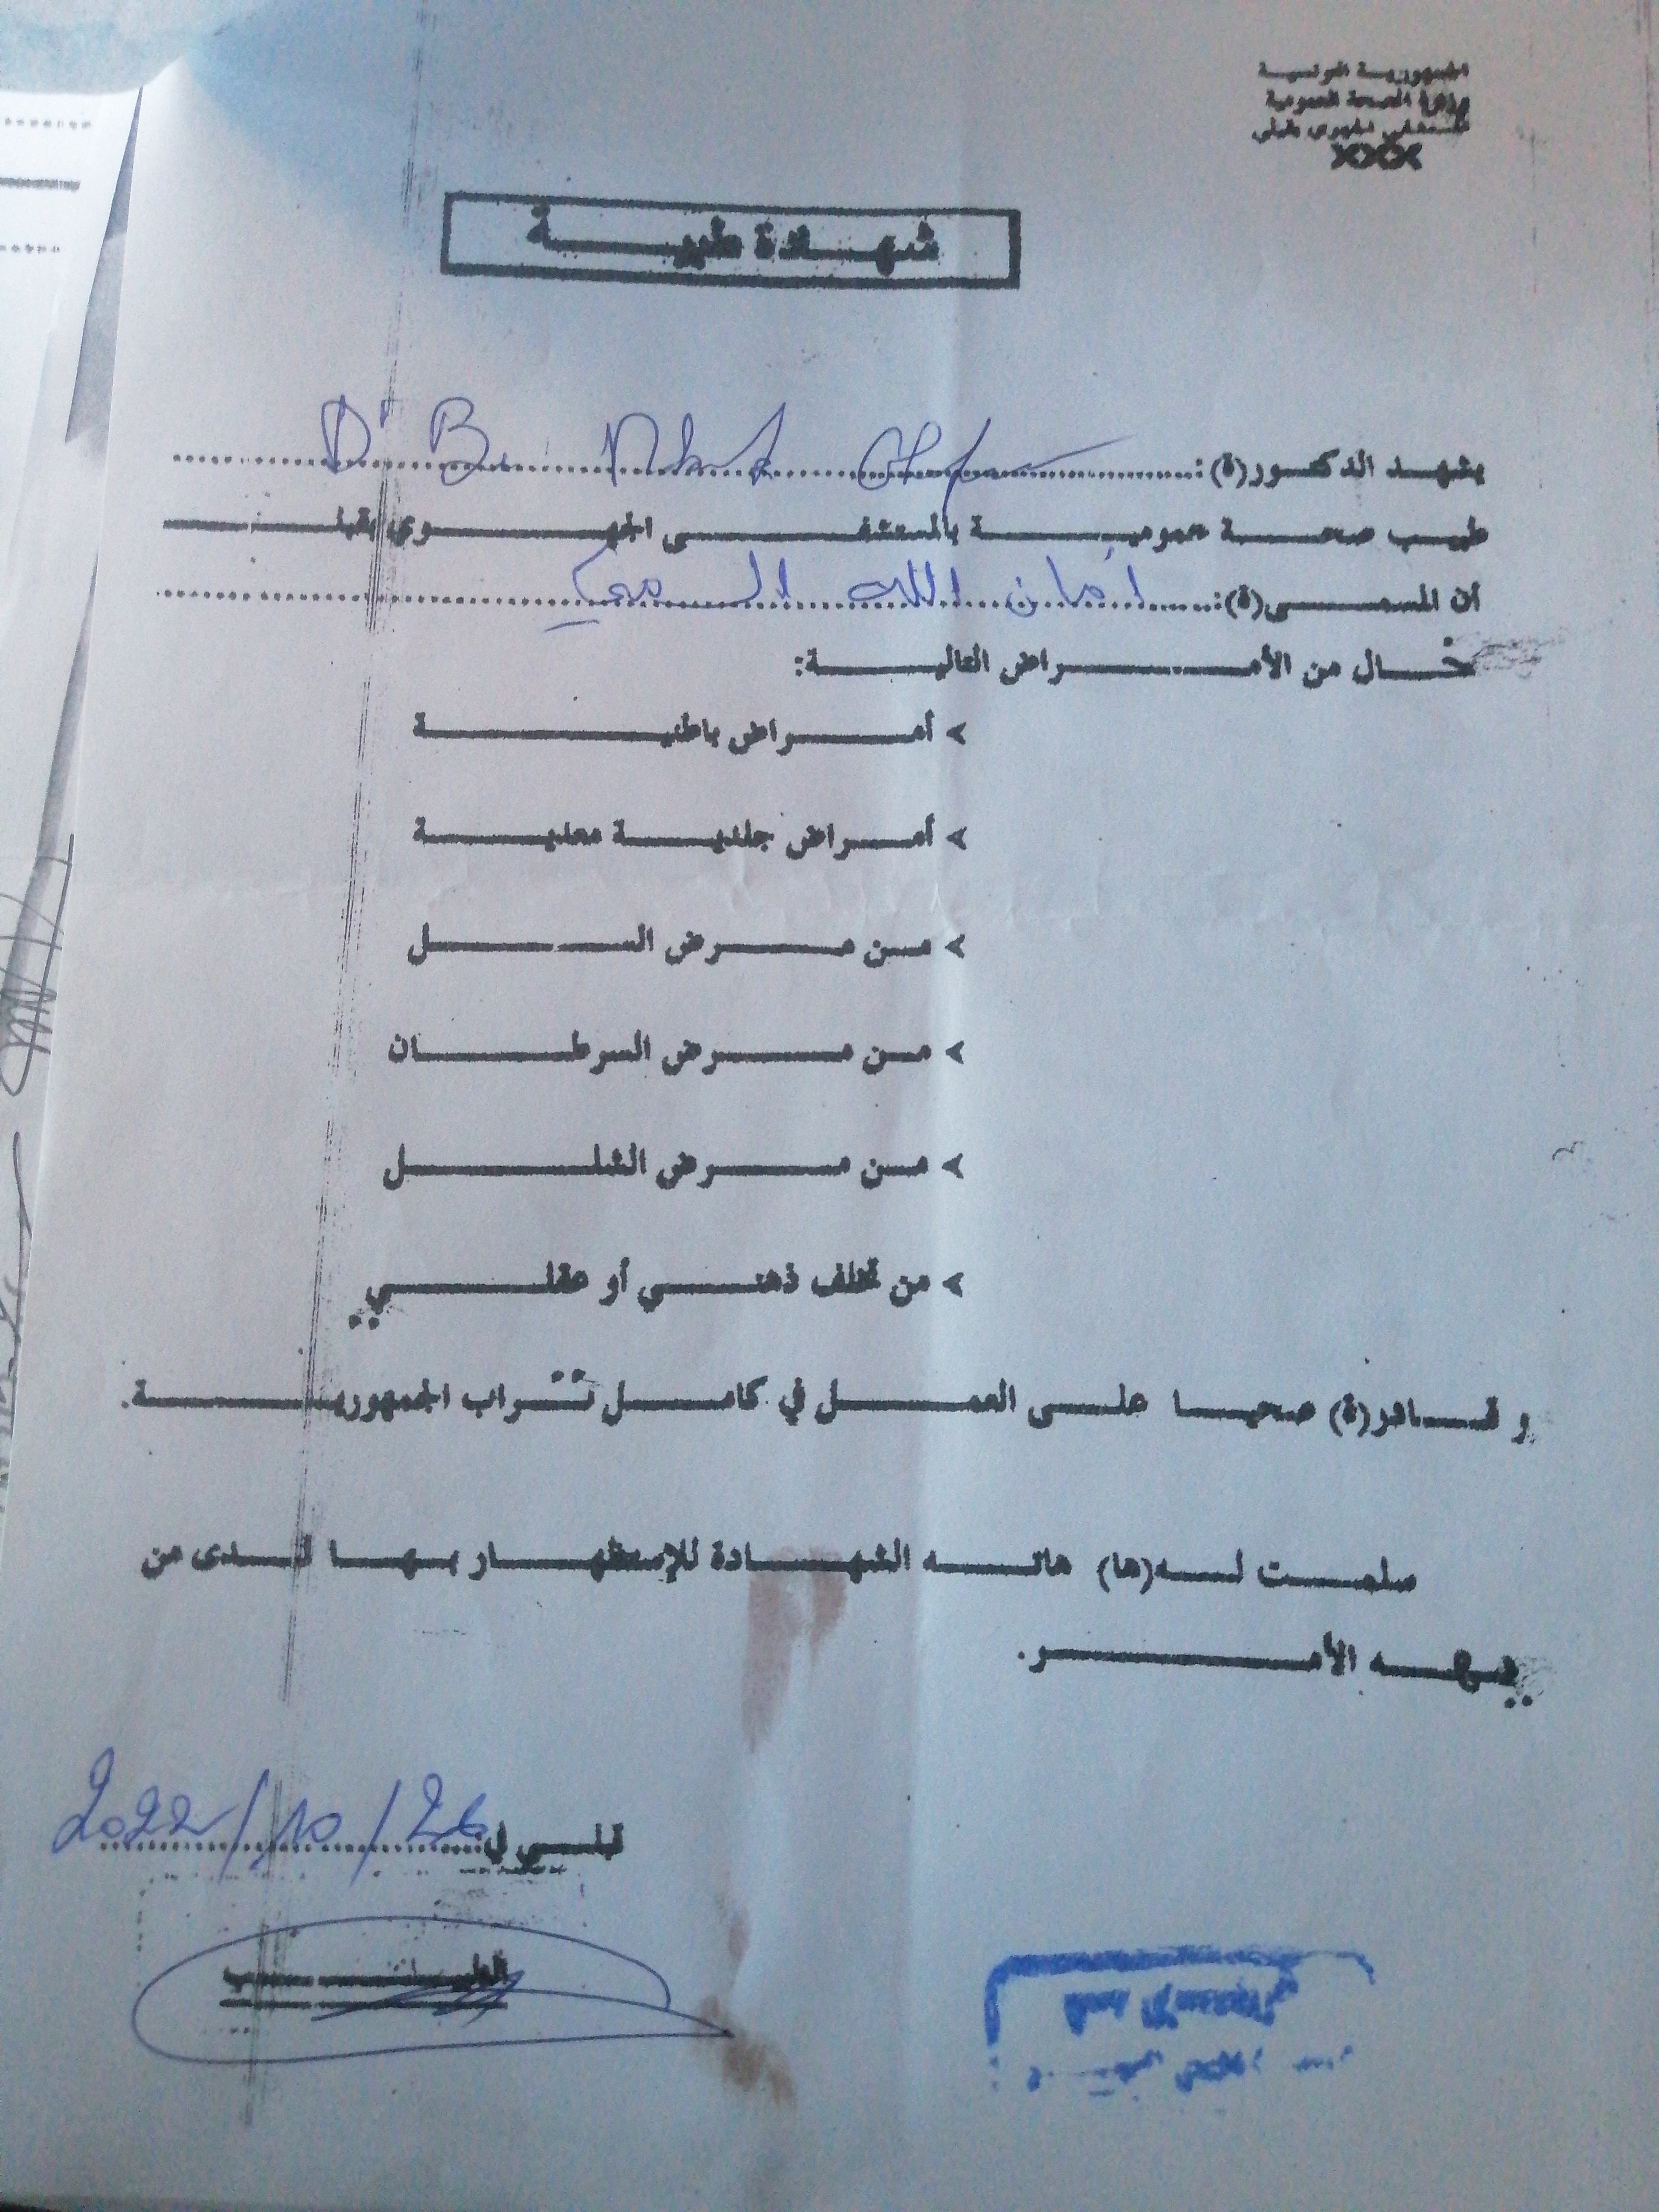 الجمهورية التونسية
وزارة الصحة العمومية
المستشفى الجهوي بقبلي
xxxx
شهادة طبية
يشهد الدكتور(ة):
Dr B
طبيب صحة عمومية بالمستشفى الجهوي بقبلي
أن المسمى(ة): أمان الله
خال من الأمراض التالية:
> أمراض باطنية
> أمراض جلدية معدية
> من مرض السل
> من مرض السرطان
> من مرض الشلل
> من تخلف ذهني أو عقلي
و قادر(ة) صحيا على العمل في كامل تراب الجمهورية.
سلمت له(ها) هاته الشهادة للإستظهار بها لدى من
يهمه الأمر.
قبلي في 2022/10/26
الطبيب